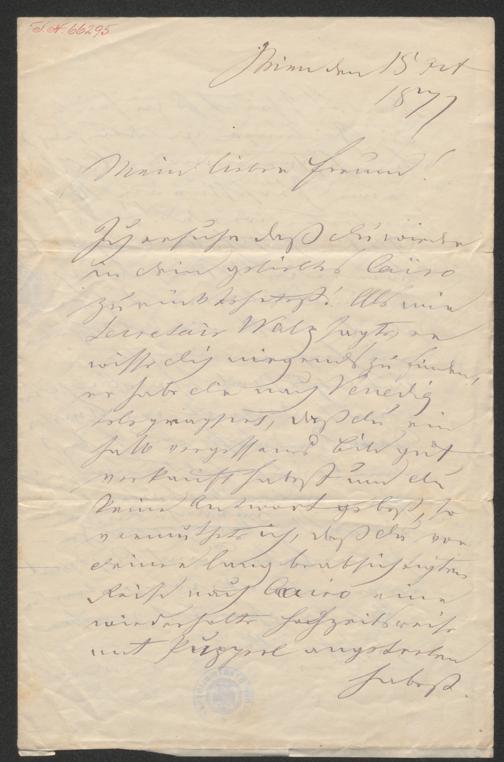 I. N. 66295
Wien den 15 Oct
1877
Mein lieber Freund!
Ich ersehe daß du wieder
in dein geliebtes Cairo
zurückkehrtest! Als mir
Secretair Walz sagte, er
wisse dich nirgends zu finden,
er habe dir nach Venedig
telegraphirt, daß du ein
halb vergessenes Bild gut
verkauft habest und du
keine Antwort gebest, so
vermuthete ich, daß du vor
deiner lang beabsichtigten
Reise nach Cairo eine
wiederholte Hochzeitsreise
mit angetreten
habest.